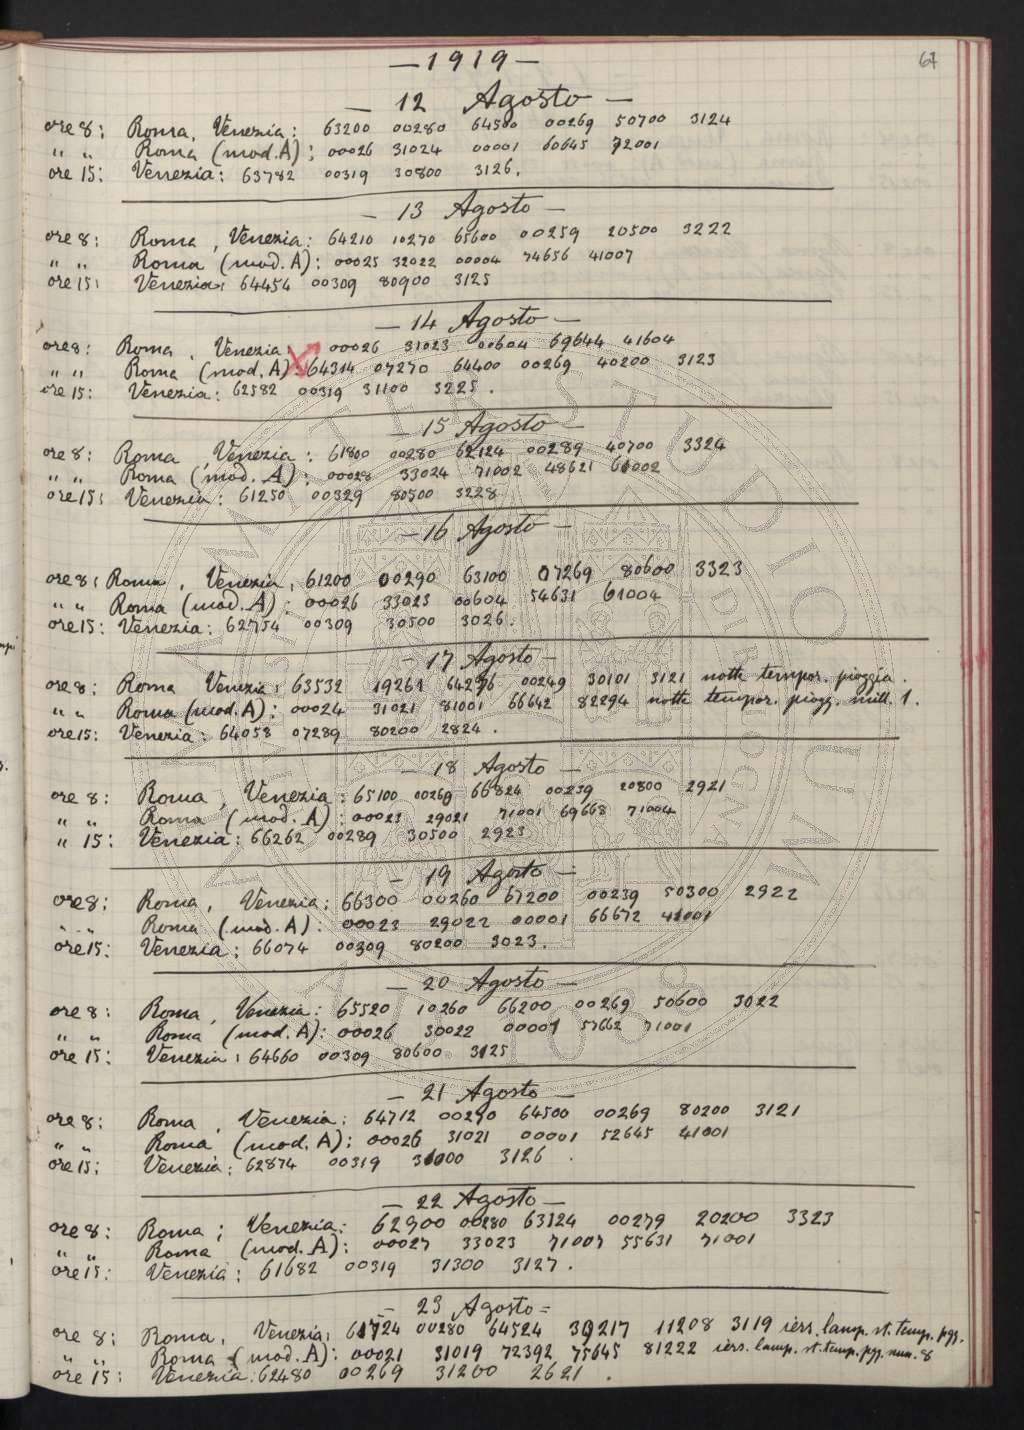 61
— 1919 —
— 12 Agosto —
ore 8: Roma, Venezia: 63200 00280 64500 00269 50700 3124
" " Roma (mod. A): 00026 31024 00001 60645 72001
ore 15: Venezia: 63782 00319 30800 3126.
— 13 Agosto —
ore 8: Roma, Venezia: 64210 10270 65600 00259 20500 3222
" " Roma (mod. A): 00025 32022 00004 74656 41007
ore 15: Venezia: 64454 00309 80900 3125
— 14 Agosto —
ore 8: Roma, Venezia: 00026 31023 00604 69644 41604
" " Roma (mod. A): 64314 07270 64400 00269 40200 3123
ore 15: Venezia: 62582 00319 31100 3225.
— 15 Agosto —
ore 8: Roma, Venezia: 61800 00280 62124 00289 40700 3324
" " Roma (mod. A): 00028 33024 71002 48621 61002
ore 15: Venezia: 61250 00329 80500 3228
— 16 Agosto —
ore 8: Roma, Venezia: 61200 00290 63100 07269 80600 3323
" " Roma (mod. A): 00026 33023 00604 54631 61004
ore 15: Venezia: 62754 00309 30500 3026.
— 17 Agosto —
ore 8: Roma Venezia: 63532 19261 64276 00249 30101 3121 notte tempor. pioggia.
" " Roma (mod. A): 00024 31021 81001 66642 82294 notte tempor. piogg. mill. 1.
ore 15: Venezia: 64058 07289 80200 2824.
— 18 Agosto —
ore 8: Roma, Venezia: 65100 00260 66824 00239 20800 2921
" " Roma (mod. A): 00023 29021 71001 69668 71004
" 15: Venezia: 66262 00289 30500 2923
— 19 Agosto —
ore 8: Roma, Venezia: 66300 00260 67200 00239 50300 2922
" " Roma (mod. A): 00023 29022 00001 66672 41001
ore 15: Venezia: 66074 00309 80200 3023.
— 20 Agosto —
ore 8: Roma, Venezia: 65520 10260 66200 00269 50600 3022
" " Roma (mod. A): 00026 30022 00001 57662 71001
ore 15: Venezia: 64660 00309 80600 3125
— 21 Agosto —
ore 8: Roma, Venezia: 64712 00270 64500 00269 80200 3121
" " Roma (mod. A): 00026 31021 00001 52645 41001
ore 15: Venezia: 62874 00319 31000 3126.
— 22 Agosto —
ore 8: Roma; Venezia: 62900 00280 63124 00279 20200 3323
" " Roma (mod. A): 00027 33023 71007 55631 71001
ore 15: Venezia: 61682 00319 31300 3127.
— 23 Agosto =
ore 8: Roma, Venezia: 61724 00280 64524 39217 11208 3119 iers. lamp. st. temp. pgg.
" " Roma (mod. A): 00021 31019 72392 75645 81222 iers. lamp. st. temp. pgg. mm. 8
ore 15: Venezia: 62480 00269 31200 2621.